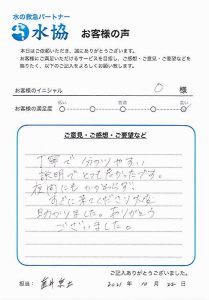 水の救急パートナー
水協 お客様の声
本日はご依頼いただき、誠にありがとうございます。
お客様にご満足いただけるサービスを目指し、ご感想・ご意見・ご要望などを
賜りたく、以下のご記入をよろしくお願い致します。
お客様のイニシャル O 様
お客様の満足度 低い 普通 高い
ご意見・ご感想・ご要望など
丁寧で分かりやすい
説明でとても良かったです。
夜間にもかかわらず、
すぐに来てくださり大変
助かりました。ありがとう
ございました。
ご記入ありがとうございました。
担当: 2021年 10月 22日